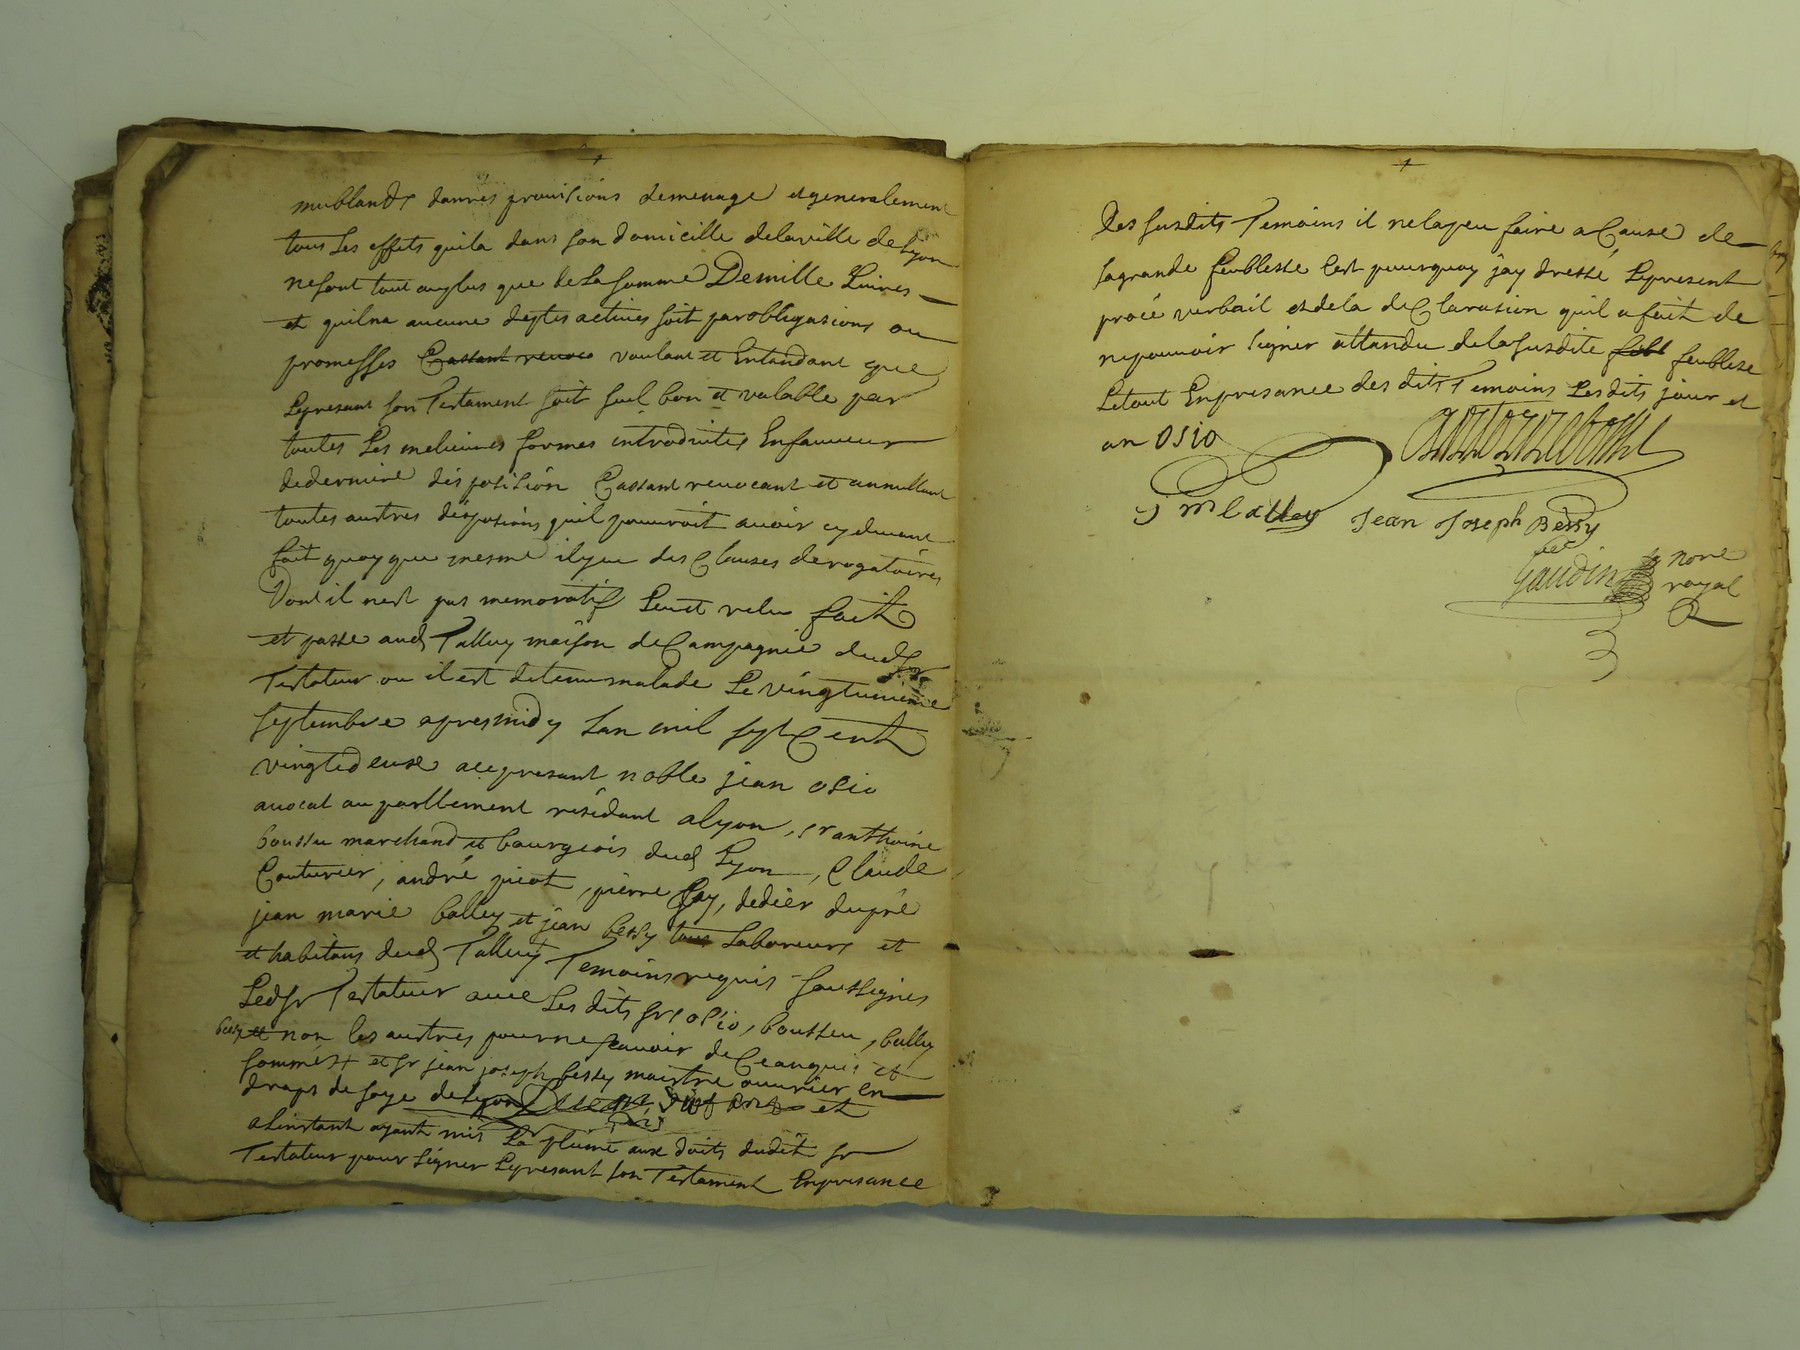 mublandz danrés provisions demenage et generalement
tous les effets quila dans son domicille delaville de Lyon
nesont tout auplus que de la somme Demille Livres
et quilna aucune destes actives soit parobligasions ou
promesses Cassant revoco voulant et Entandant que
Lepresant son Testament soit seul bon et valable par
toutes Les melieures formes introduites Enfauveur
dederniere disposision Cassant revocant et annullant
toutes austres disposisions quil pouvroit avoir cy devant
fait quoy que mesme ilyeu des Clauses derogatoires
Dont il nest pas memoratif Leu et relu fait
et passe aud Talluy maison de Campagnie dud Sr
Testateur ou il est detenu malade Le vingtunieme
septembre apresmidy Lan mil sept Cent
vingtedeuse acepresant noble jean osio
avocat au parllement residant alyon, sr anthoine
boussu marchand et bourgeois dud Lyon, Claude
Couturier, andré piot, pierre Gay, dedier dupré
jean marie balley et jean bessy tous Laboreurs et
et habitans dud Talluy Temoins requis soussignes
Ledsr Testateur avec Les dits srs osio, boussu, balley
bessy et non les austres pour ne scavoir de Ceanquis et
sommés + et sr jean joseph bessy maistre ouvrier en
draps de soye de Lyon et
alinstant ayant mis La plume aux doits dudit sr
Testateur pour signer Lepresant son Testament Enpresance
Des susdits Temoins il nelapeu faire a Cause de
sagrande feublesse Cest pourquoy jay dressé Lepresent
procé verbail et de la declarasion quil a fait de
nepouvoir signer attandu delasusdite feublese
Letout Enpresance des dits Temoins Lesdits jour et
an Osio
antoine boussu
j m balley Jean Joseph Bessy
Gaudin nore
royal